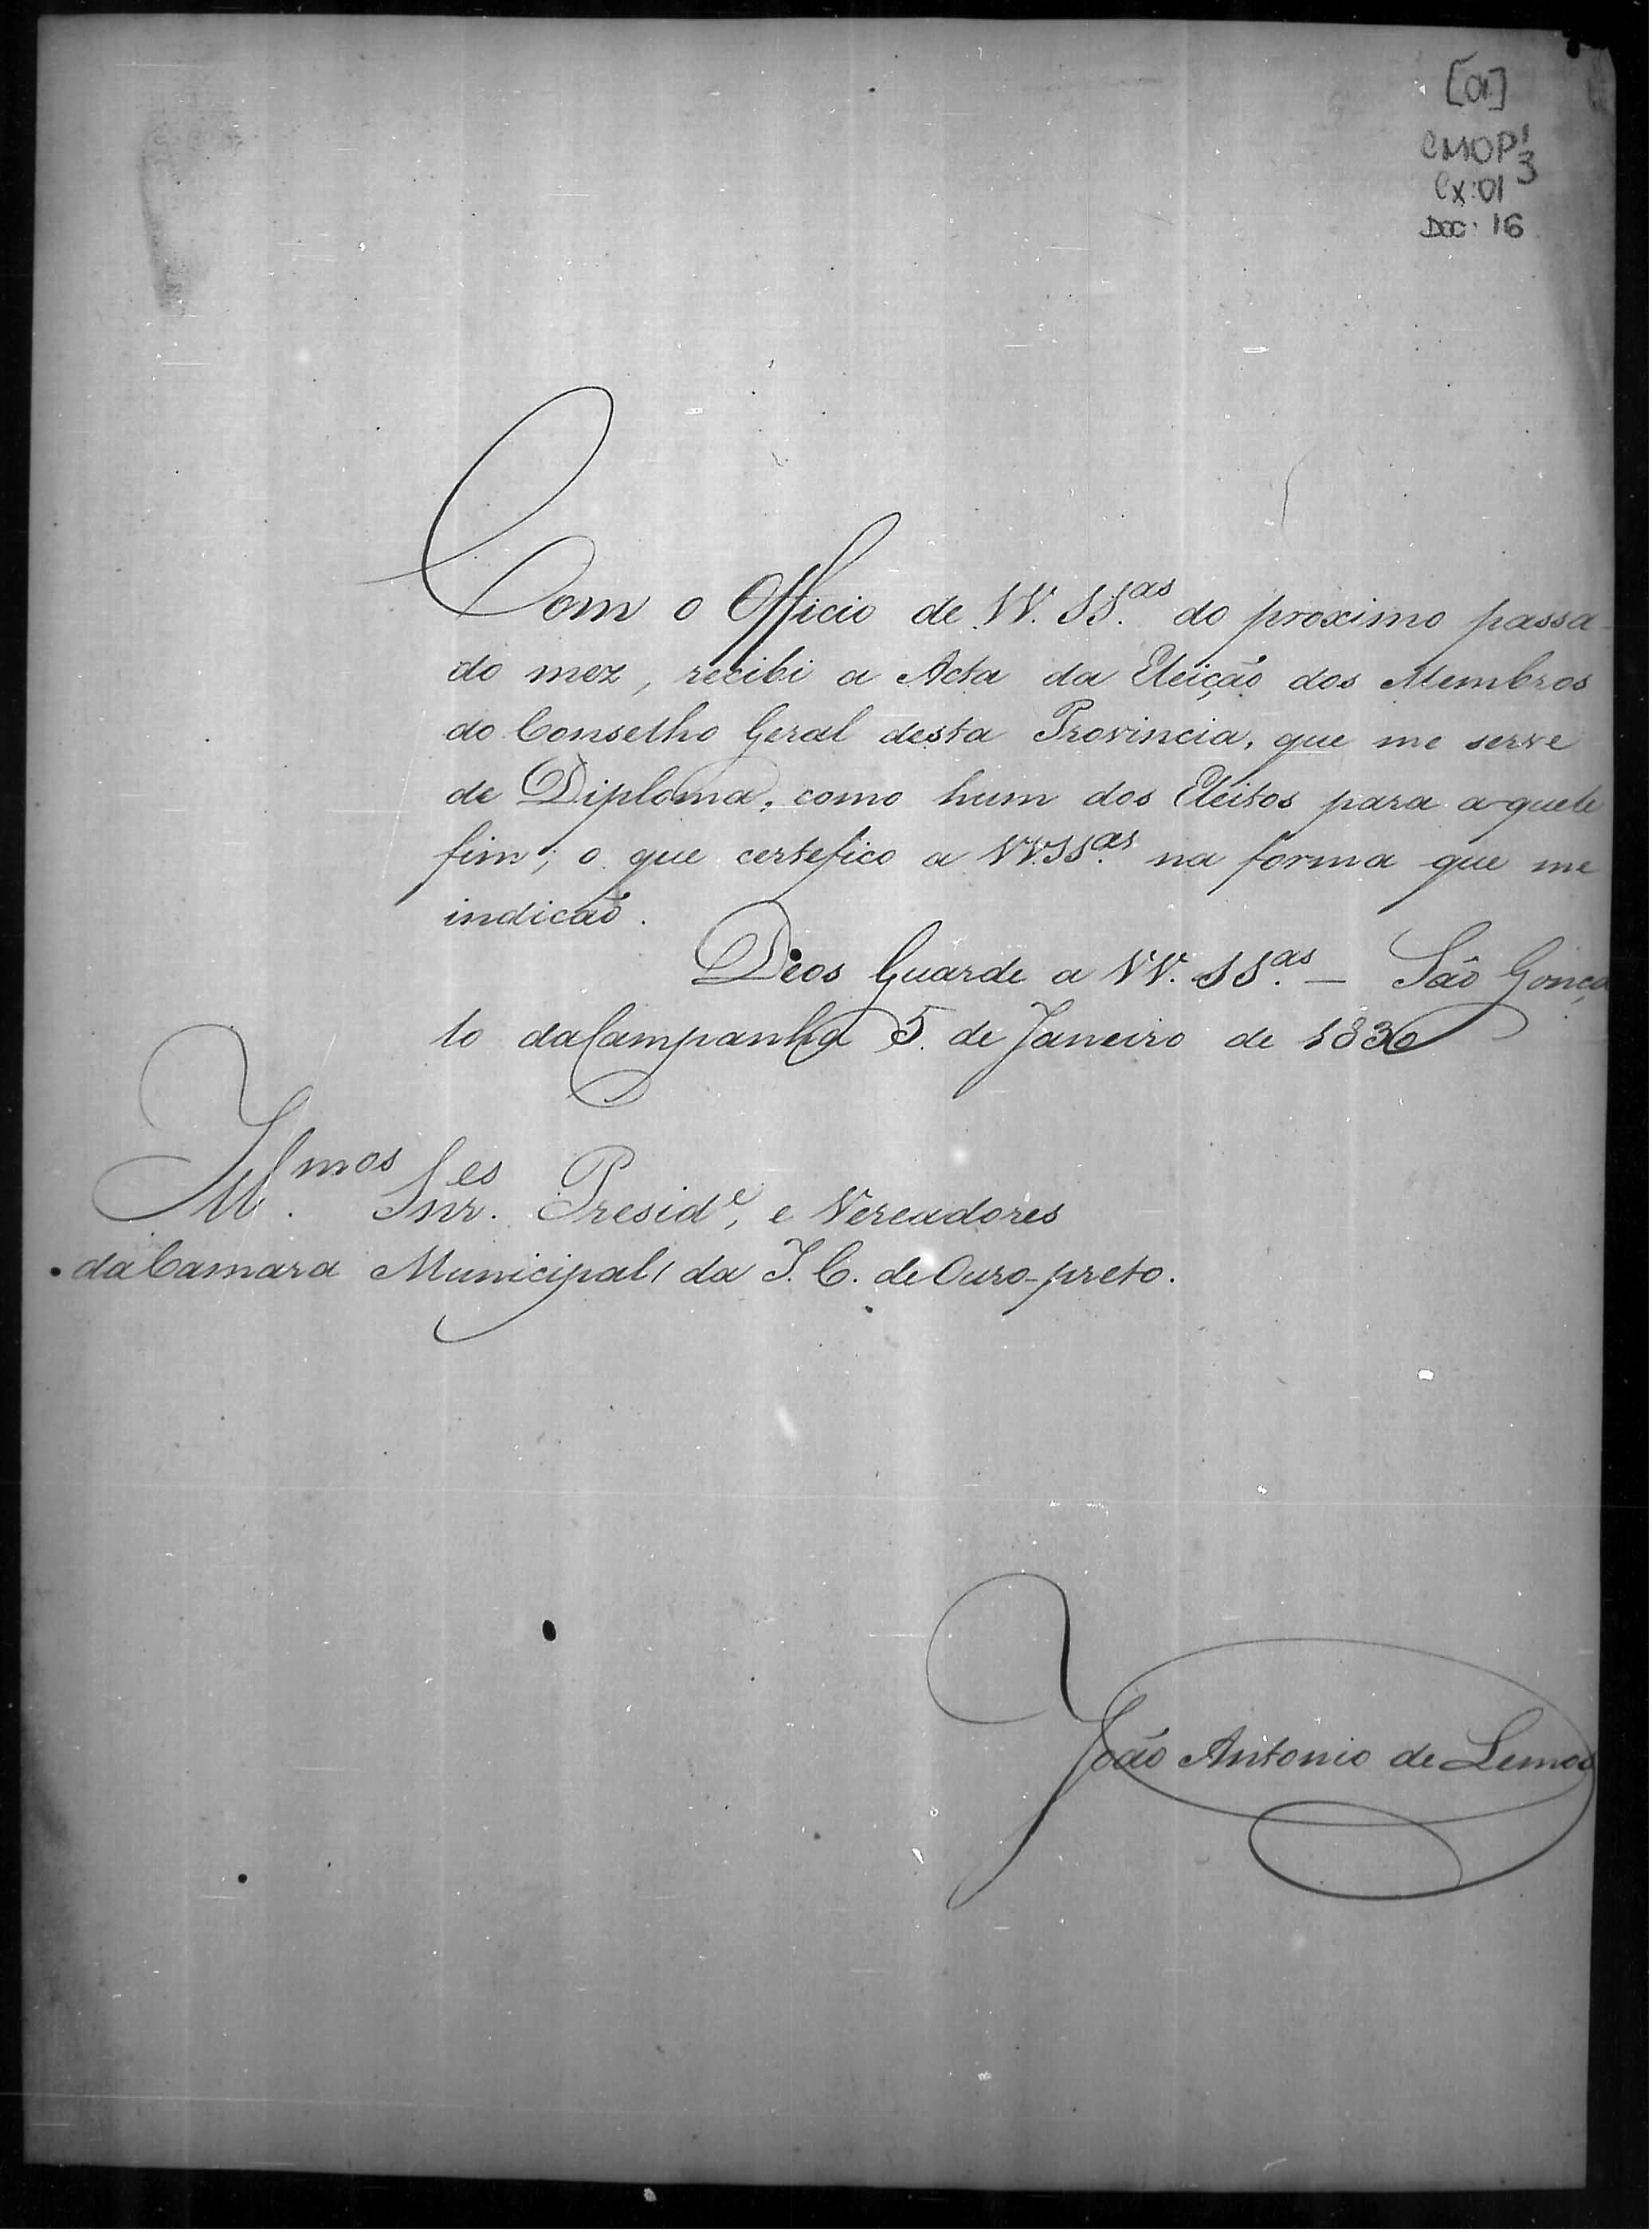 [01]
CMOP 1/3
Cx: 01
DOC: 16
Com o Officio de VV. SS.as do proximo passa-
do mez, recibi a Acta da Eleição dos Membros
do Conselho Geral desta Provincia, que me serve
de Diploma, como hum dos Eleitos para aquele
fim; o que certefico a VV.SS.as na forma que me
indicaõ.
Deos Guarde a VV. SS.as — São Gonça
lo da Campanha 5 de Janeiro de 1830
Ill.mos Snr.es Presid.e, e Vereadores
da Camara Municipal da I. C. de Ouro-preto.
João Antonio de Lemos